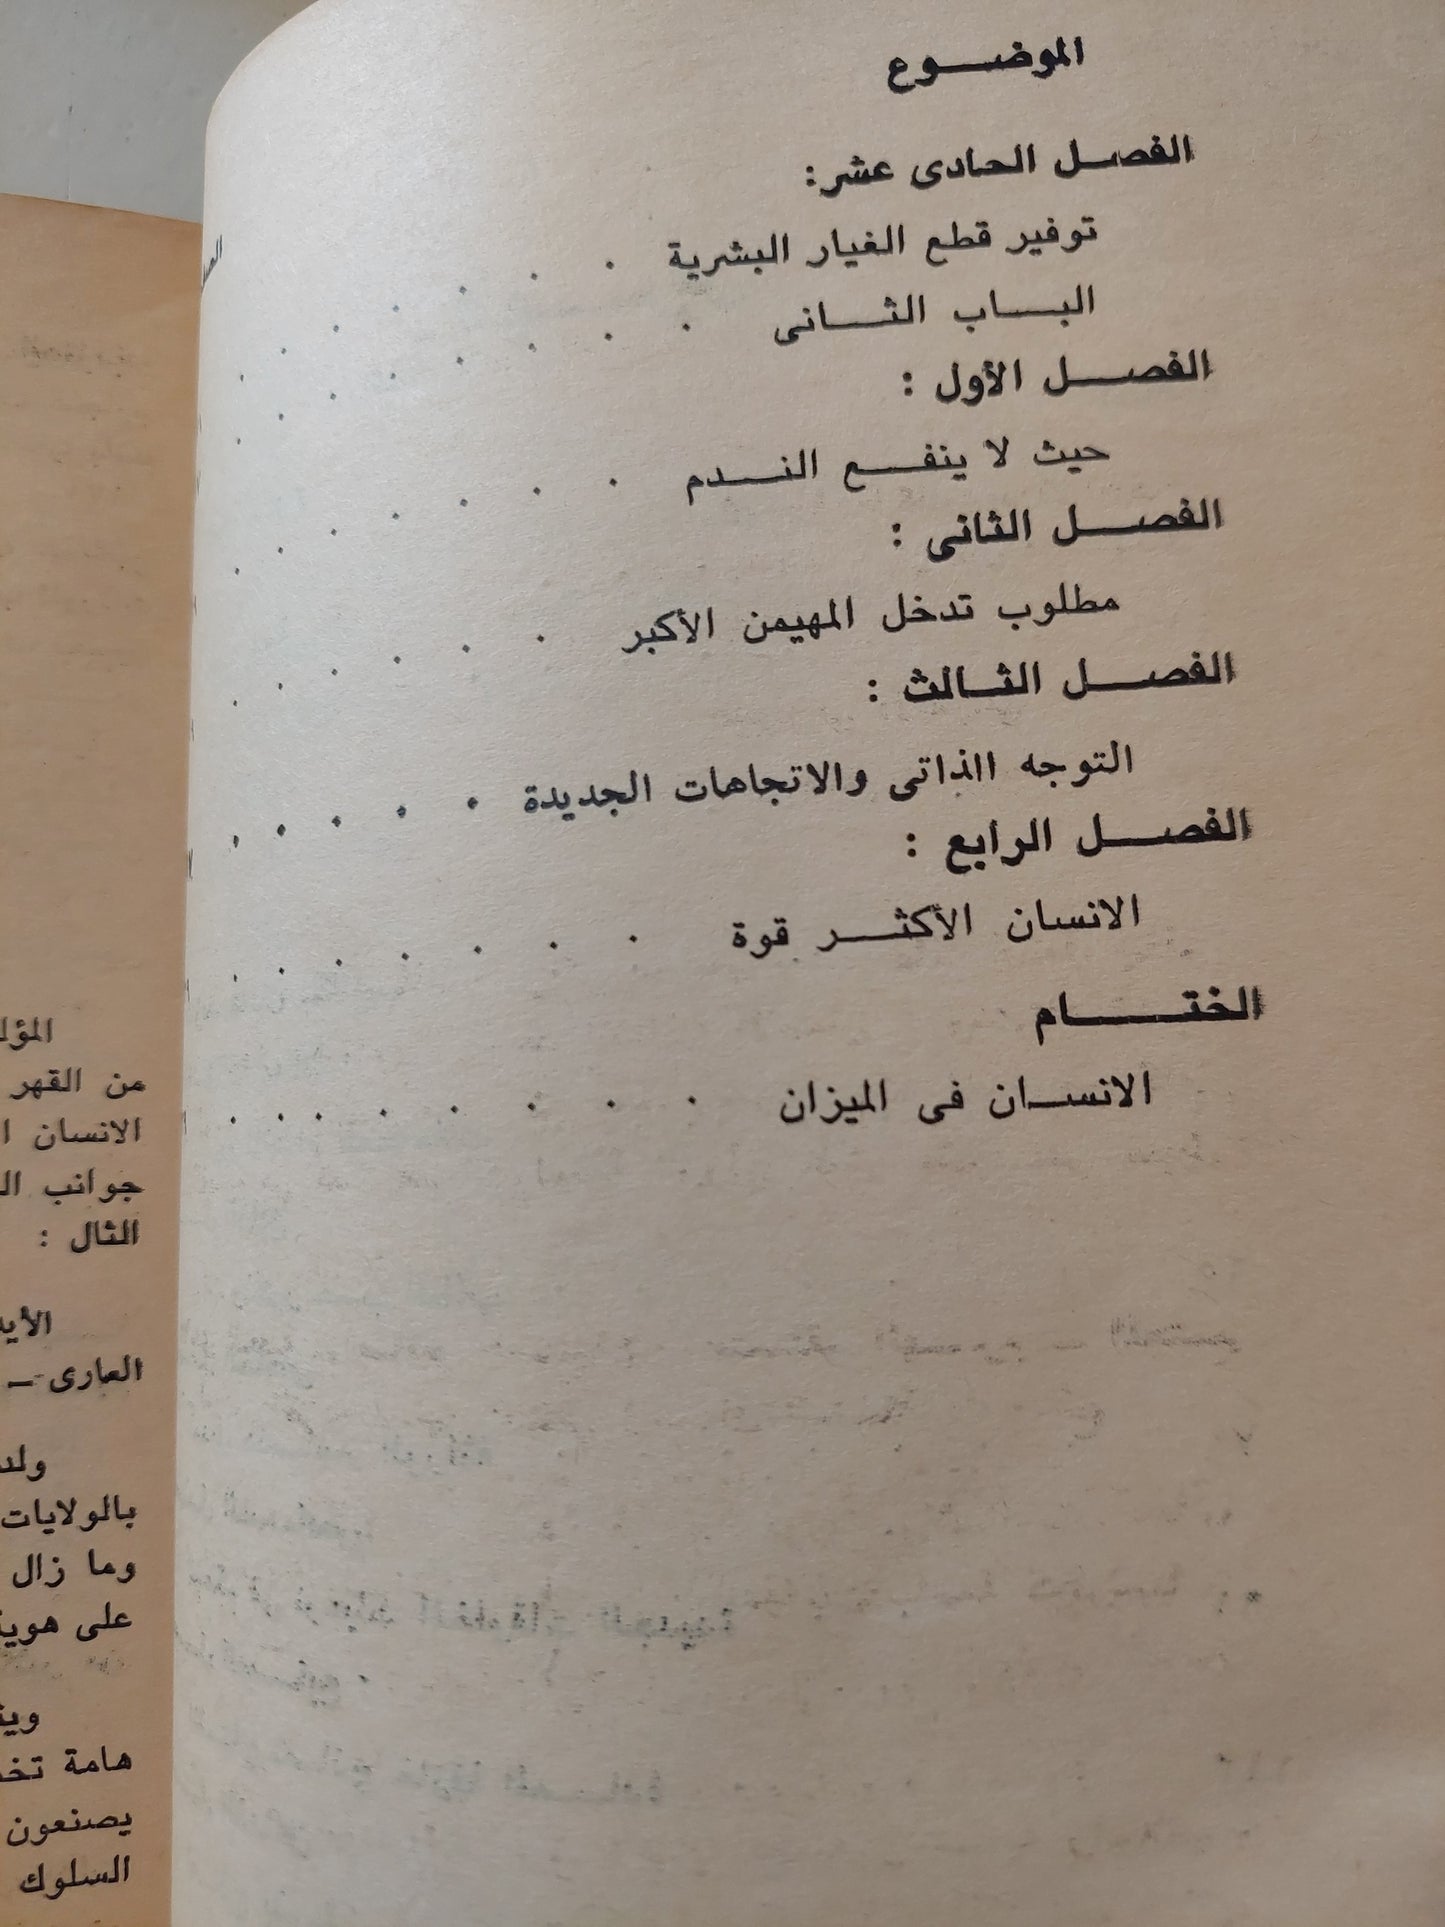 الموضوع
الفصل الحادى عشر:
توفير قطع الغيار البشرية . . . . . . .
الباب الثانى . . . . . . . .
الفصل الأول :
حيث لا ينفع الندم . . . . . . .
الفصل الثانى :
مطلوب تدخل المهيمن الأكبر . . . . . .
الفصل الثالث :
التوجه االذاتى والاتجاهات الجديدة . . . . .
الفصل الرابع :
الانسان الأكثر قوة . . . . . . . .
الختام
الانسان فى الميزان . . . . . . . . .
من القهر
الانسان
جوانب
الثال :
العارى –
بالولايات
وما زال
على
هامة
يصنعون
السلوك